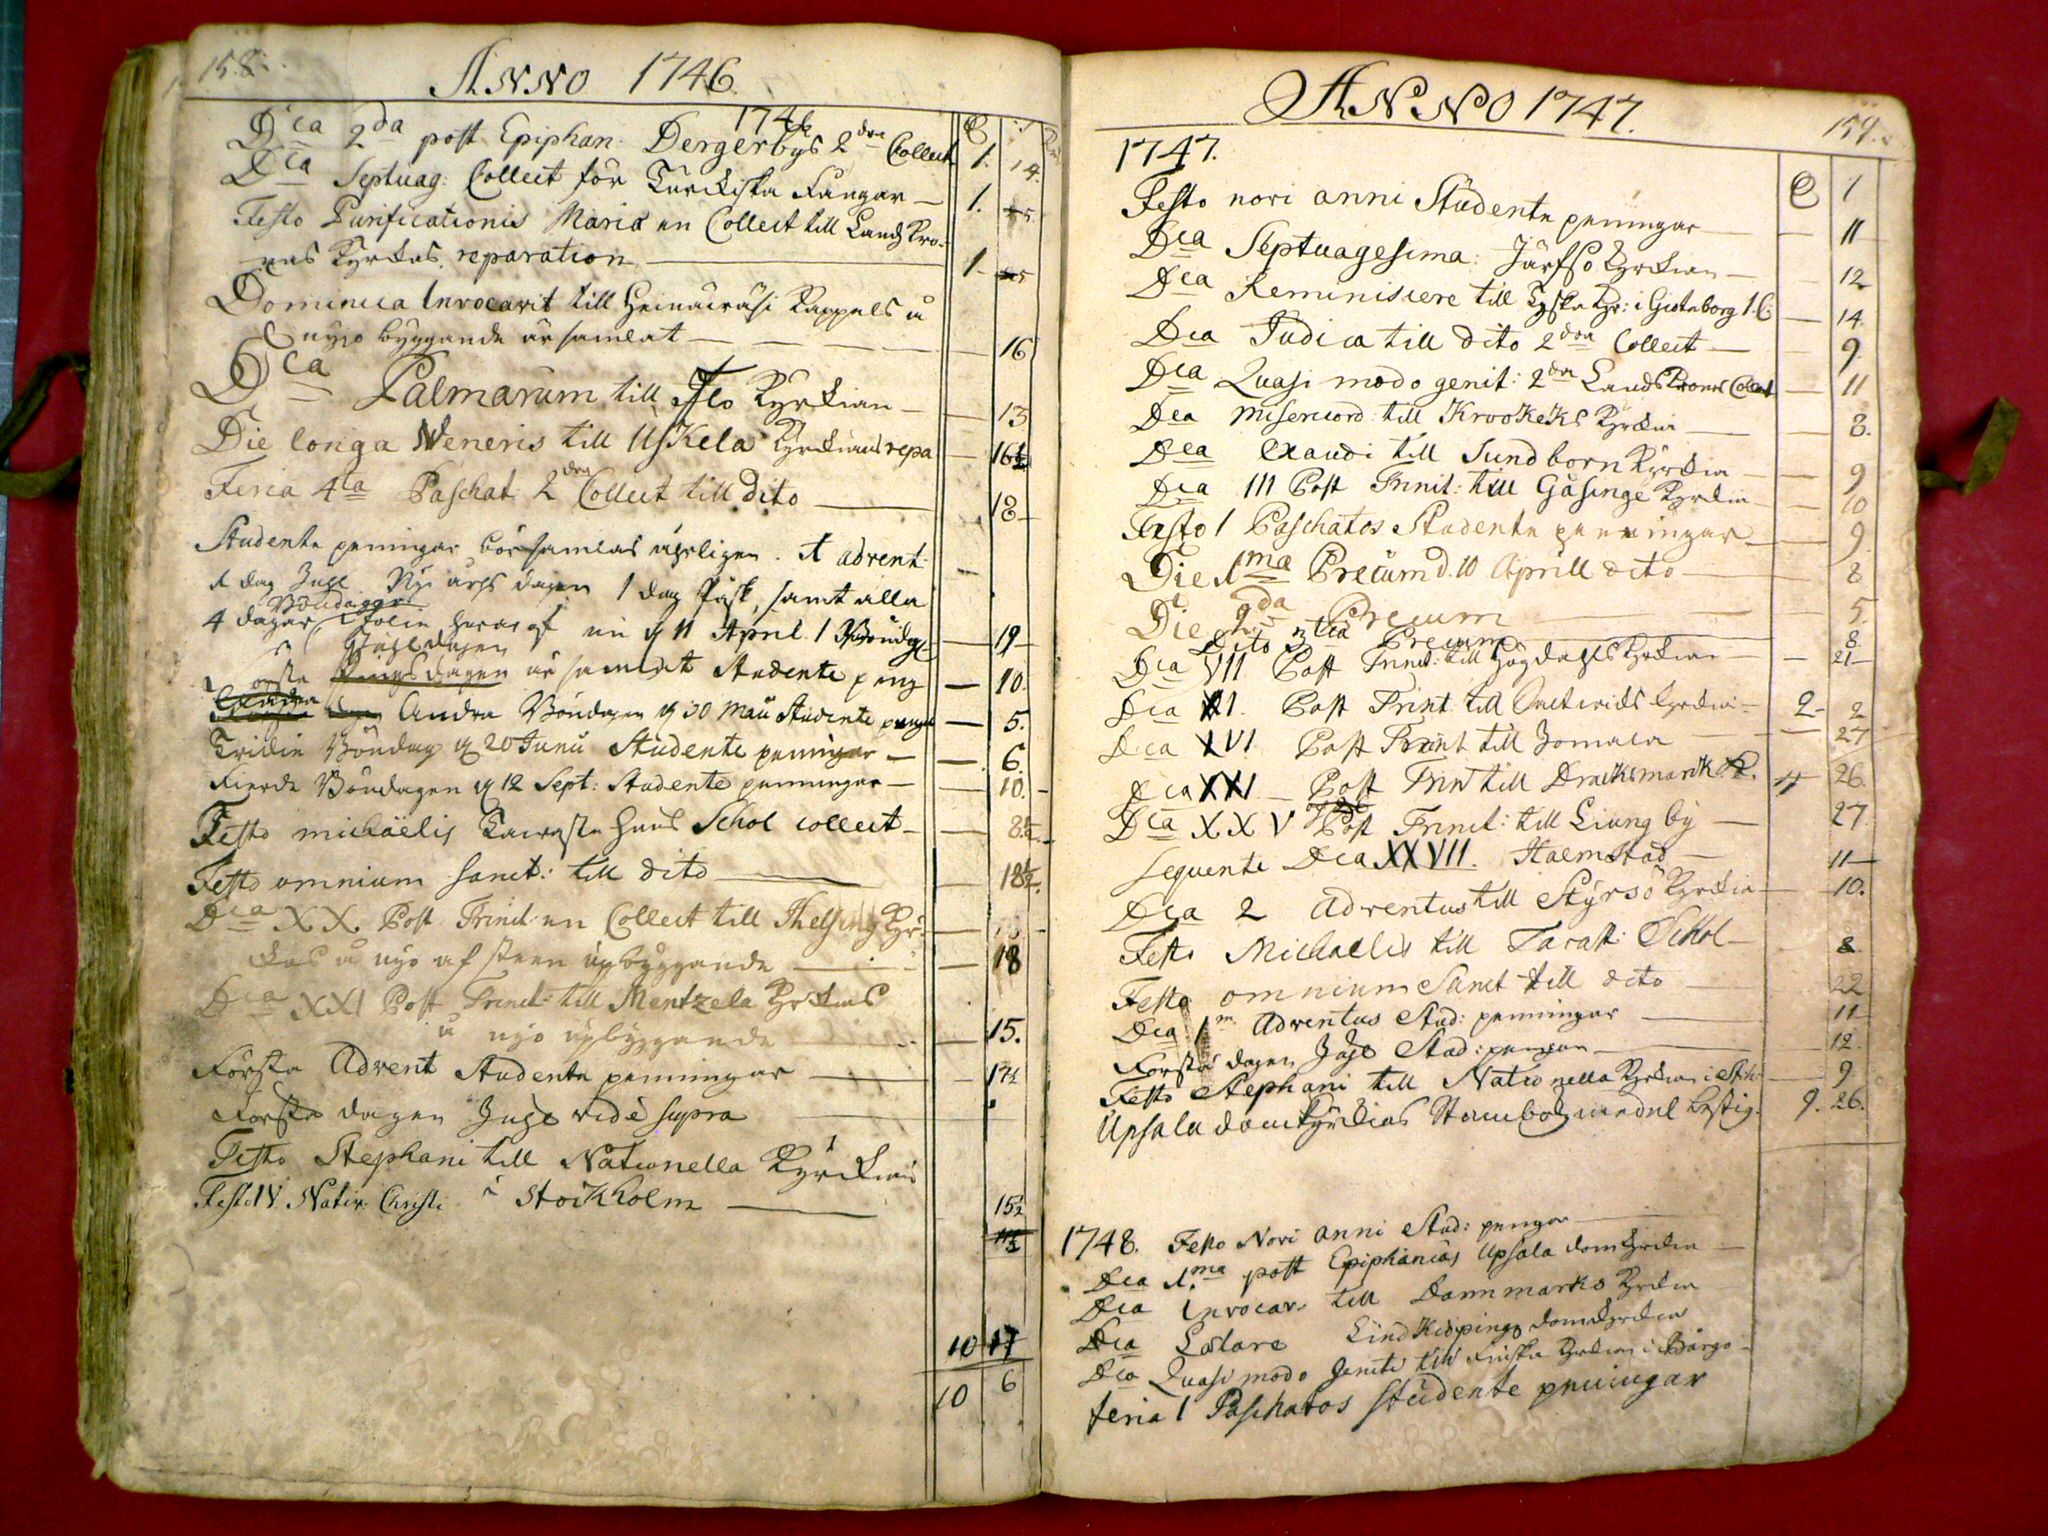 158.
ANNO 1746.
1746
Dca 2da post Epiphan: Dergerbys 2dra Collect 1. 14.
Dca Septuag: Collect för Turckiska Fångar — 1.
Festo Purificationis Mariæ en Collect till Landz Kro-
nas Kyrkas reparation — 1.
Dominica Invocavit till Kappels
nyjo byggande är samlat — 16
Dca Palmarum till Kyrkian — 13
Die longa Veneris till Uskela Kyrckians repa 16½
Feria 4ta Paschat: 2dra Collect till dito — 18
Studente peningar bör samlas åhrligen. 1 advent:
1 dag Juhl Nyi åhrs dagen 1 dag Påsk, samt alla
Böndagar
4 dagar 11 April 1 Böndag — 19
är samlat Studente peng — 10.
Andra Böndagen d 30 Maii Studente penger — 5.
Tridie Böndag d 20 Junii Studente peningar — 6.
Fierde Böndagen d 12 Sept: Studente penningar — 10.
Festo michaëlis Tawasta Huus Schol collect — 8½
Festo omnium Sanct: till dito — 18½.
Dca XX Post Trinit: en Collect till Thelsing Kyr-
kas å nyo af sten upbyggande — 18
Dca XXI Post Trinit: till Mentzela Kyrkas
å nyo upbyggande — 15.
Första Advent Studente penningar — 17½
Första dagen Juhl vide supra
Festo Stephani till Nationella Kyrckan
Festo IV Nativ: Christi i Stockholm — 15½
10 17
10 6
159.
ANNO 1747.
1747.
Festo novi anni Studente peningar — 11
Dca Septuagesima: Järfsö Kyrckian — 12
Dca Reminiscere till Tyska Kyr: i Giöteborg 1 C: — 14
Dca Judica till dito 2dra Collect — 9.
Dca Quasi modo genit: 2dra Landskrones Collect — 11
Dca Misericord: till Krookeks Kyrckia — 8.
Dca Exaudi till Sundborn Kyrckia — 9
Dca III Post Trinit: till Gåsinge Kyrckia — 10
Festo 1 Paschatos Studente penningar — 9
Die 1ma Precum d. 10 Aprill dito — 8
Die 2da Precum — 5.
Dito 3tia Precum — 8.
Dca VII Post Trinit: till Högdahls Kyrckian — 21
Dca XI. Post Trinit till Kyrckia — 2 2
Dca XVI Post Trinit till Jomala — 27
Dca XXI Post Trinit till Dracksmark — 4 26.
Dca XXV Post Trinit: till Liungby — 27
Sequente Dca XXVII. Halmstad — 11
Dca 2 Adventus till Styrsö Kyrckia — 10.
Festo Michaelis till Tavast: Schol — 8
Festo omnium Sanct till dito — 22
Dca 1m Adventus Stud: penningar — 11
Första dagen Juhl Stud: pengar — 12.
Festo Stephani till Nationella Kyrckian i Sth: — 9
Upsala domkyrckias bestig. 9. 26.
1748. Festo Novi anni Stud: pengar
Dca 1ma post Epiphanias Upsala domkyrckia
Dca Invocav: till Dannmarks Kyrckia
Dca Lætare Lindkiöpings domkyrckia
Dca Quasi modo Geniti till Finska Kyrckian i Borgo
feria 1 Paschatos Studente peningar